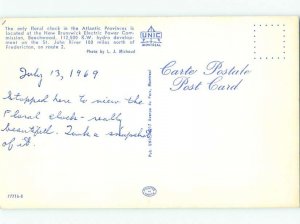 The only floral clock in the Atlantic Provinces is
located at the New Brunswick Electric Power Com-
mission, Beechwood, 112,500 K.W. hydro development
on the St. John River 100 miles north of
Fredericton, on route 2.
Photo by L. J. Michaud
UNIC
MONTREAL
Carte Postale
Post Card
July 13, 1969
Stopped here to view the
floral clock - really
beautiful. Took a snapshot
of it.